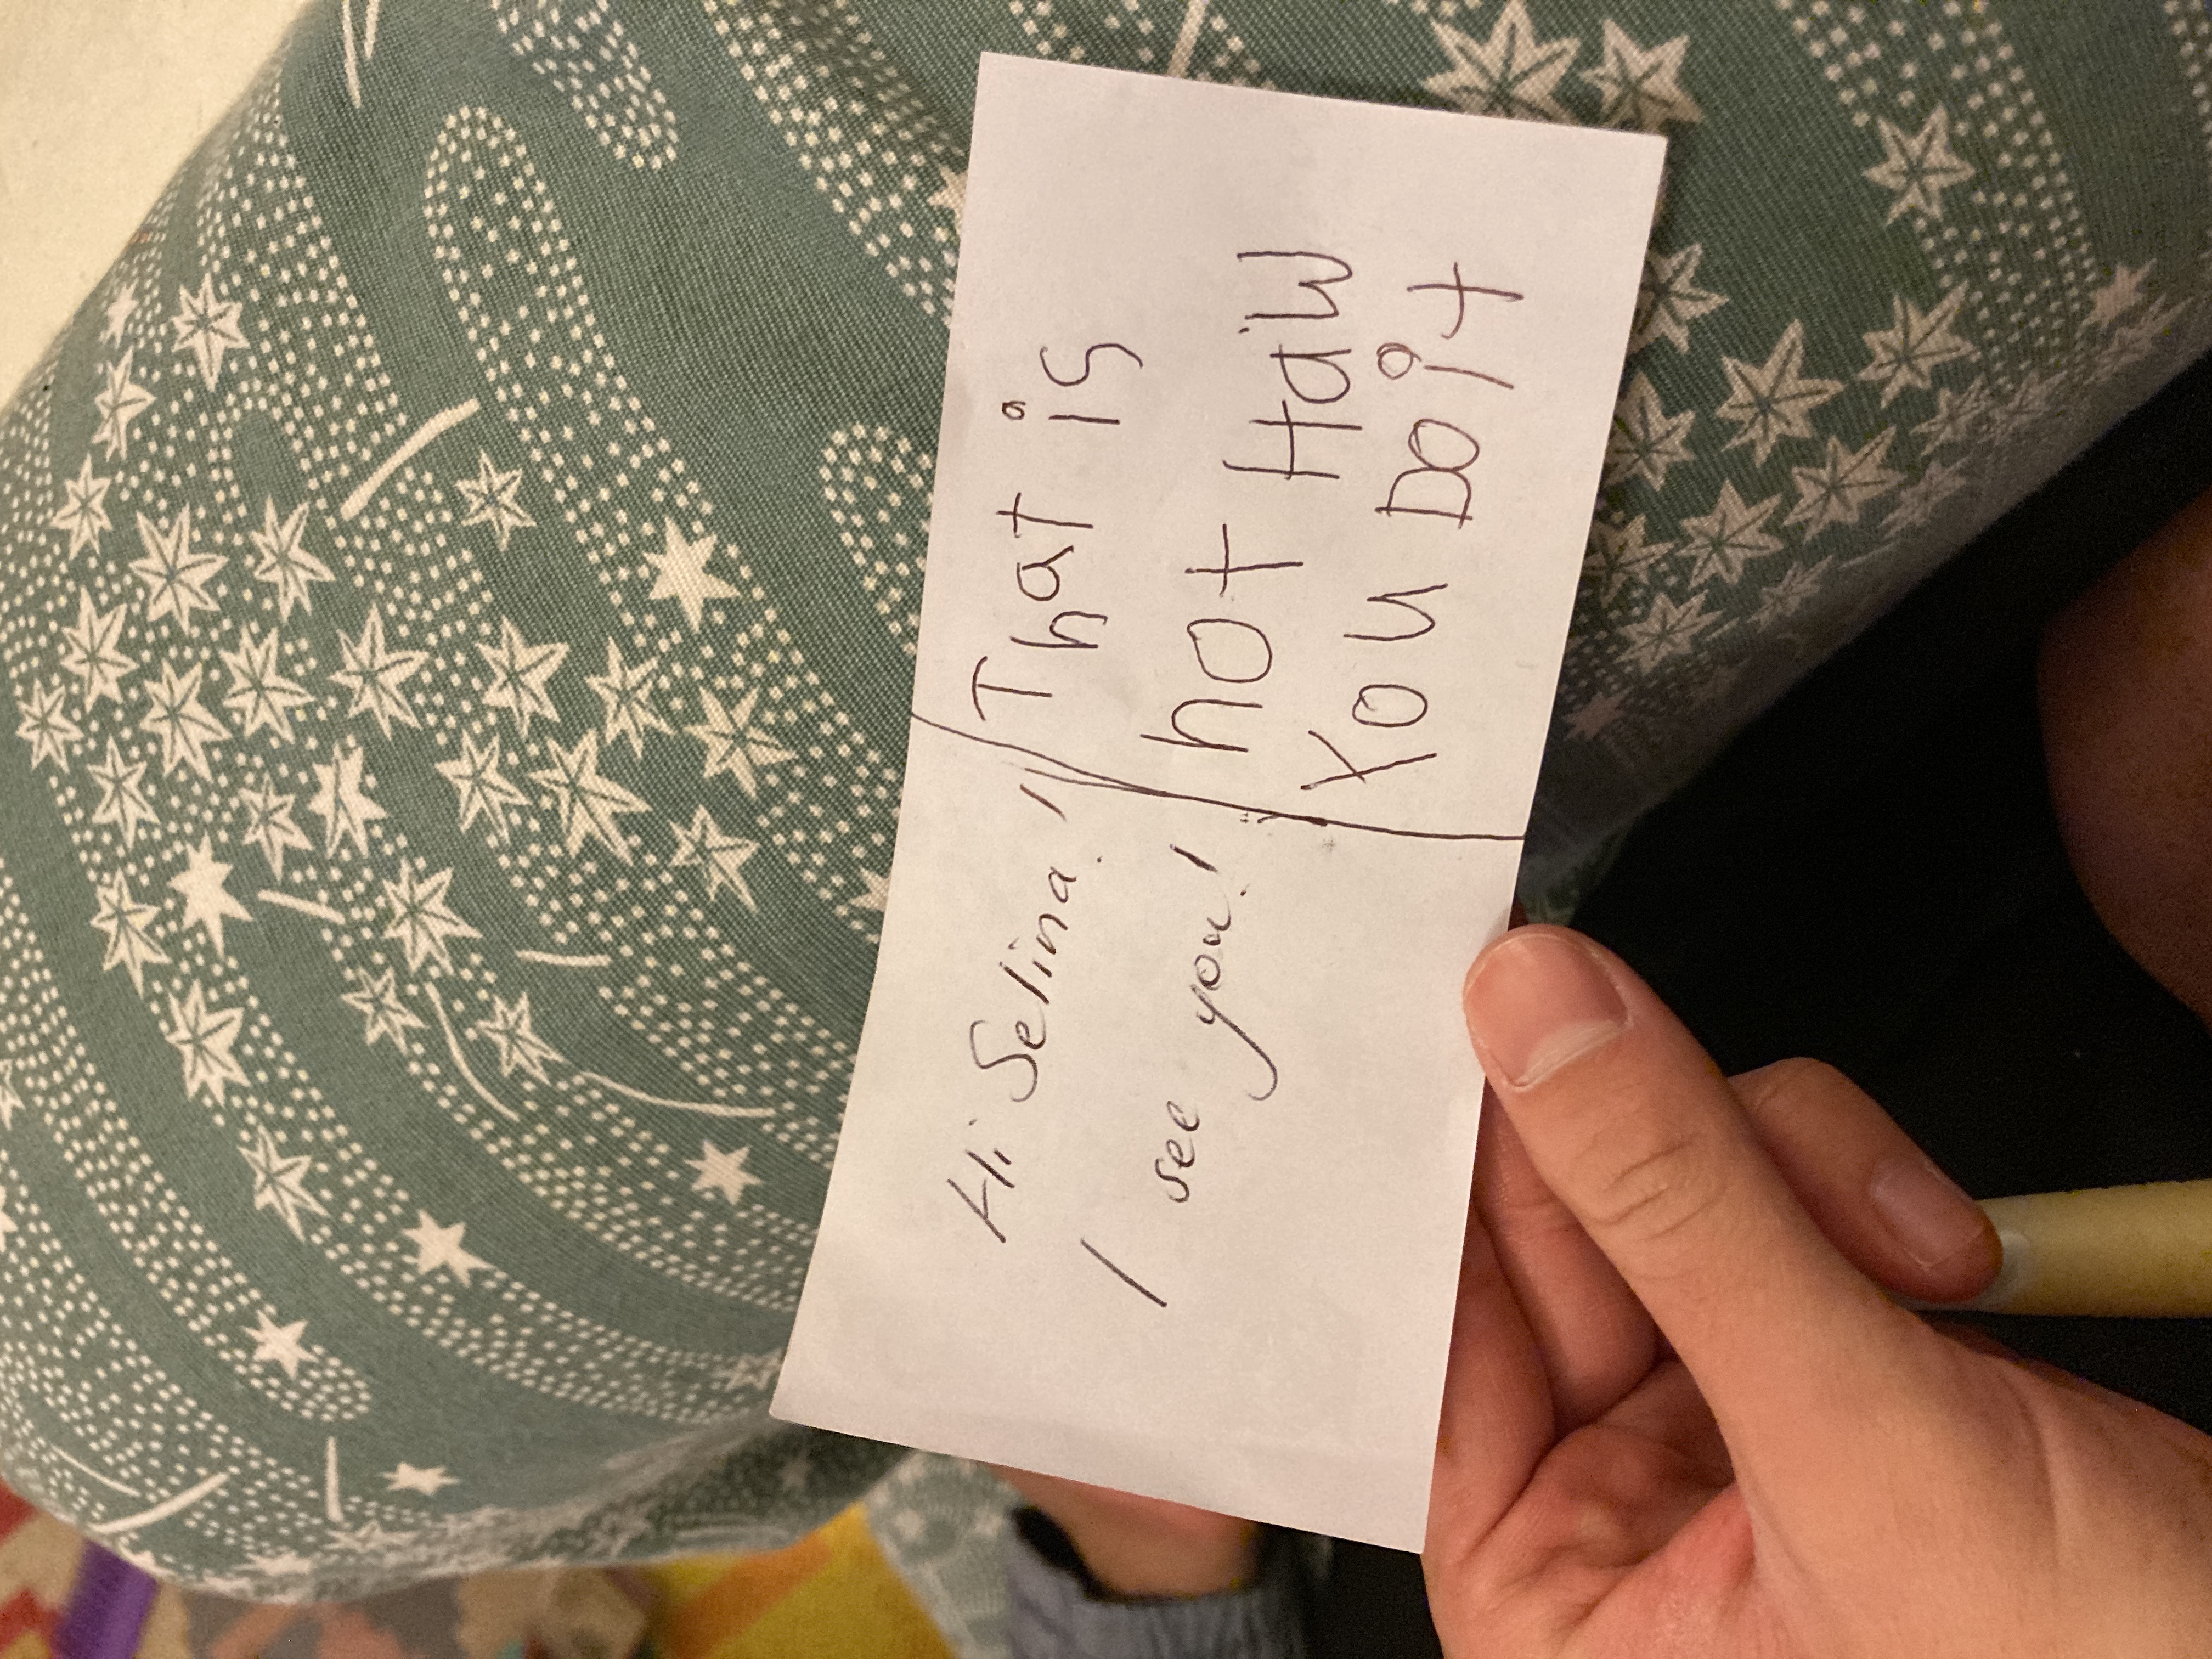 Hi Selina!
I see you!
That is
not Haw
You Do it